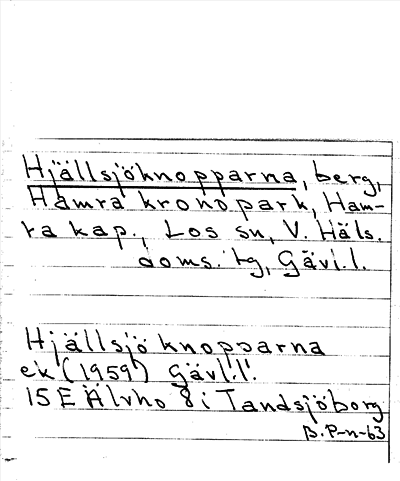 Hjällsjöknopparna, berg,
Hamra kronopark, Ham-
ra kap., Los sn, V. Häls.
doms. tg, Gävl.l.
Hjällsjöknopparna
ek (1959) Gävl.l.
15E Älvho 8i Tandsjöborg
B. P-n-63